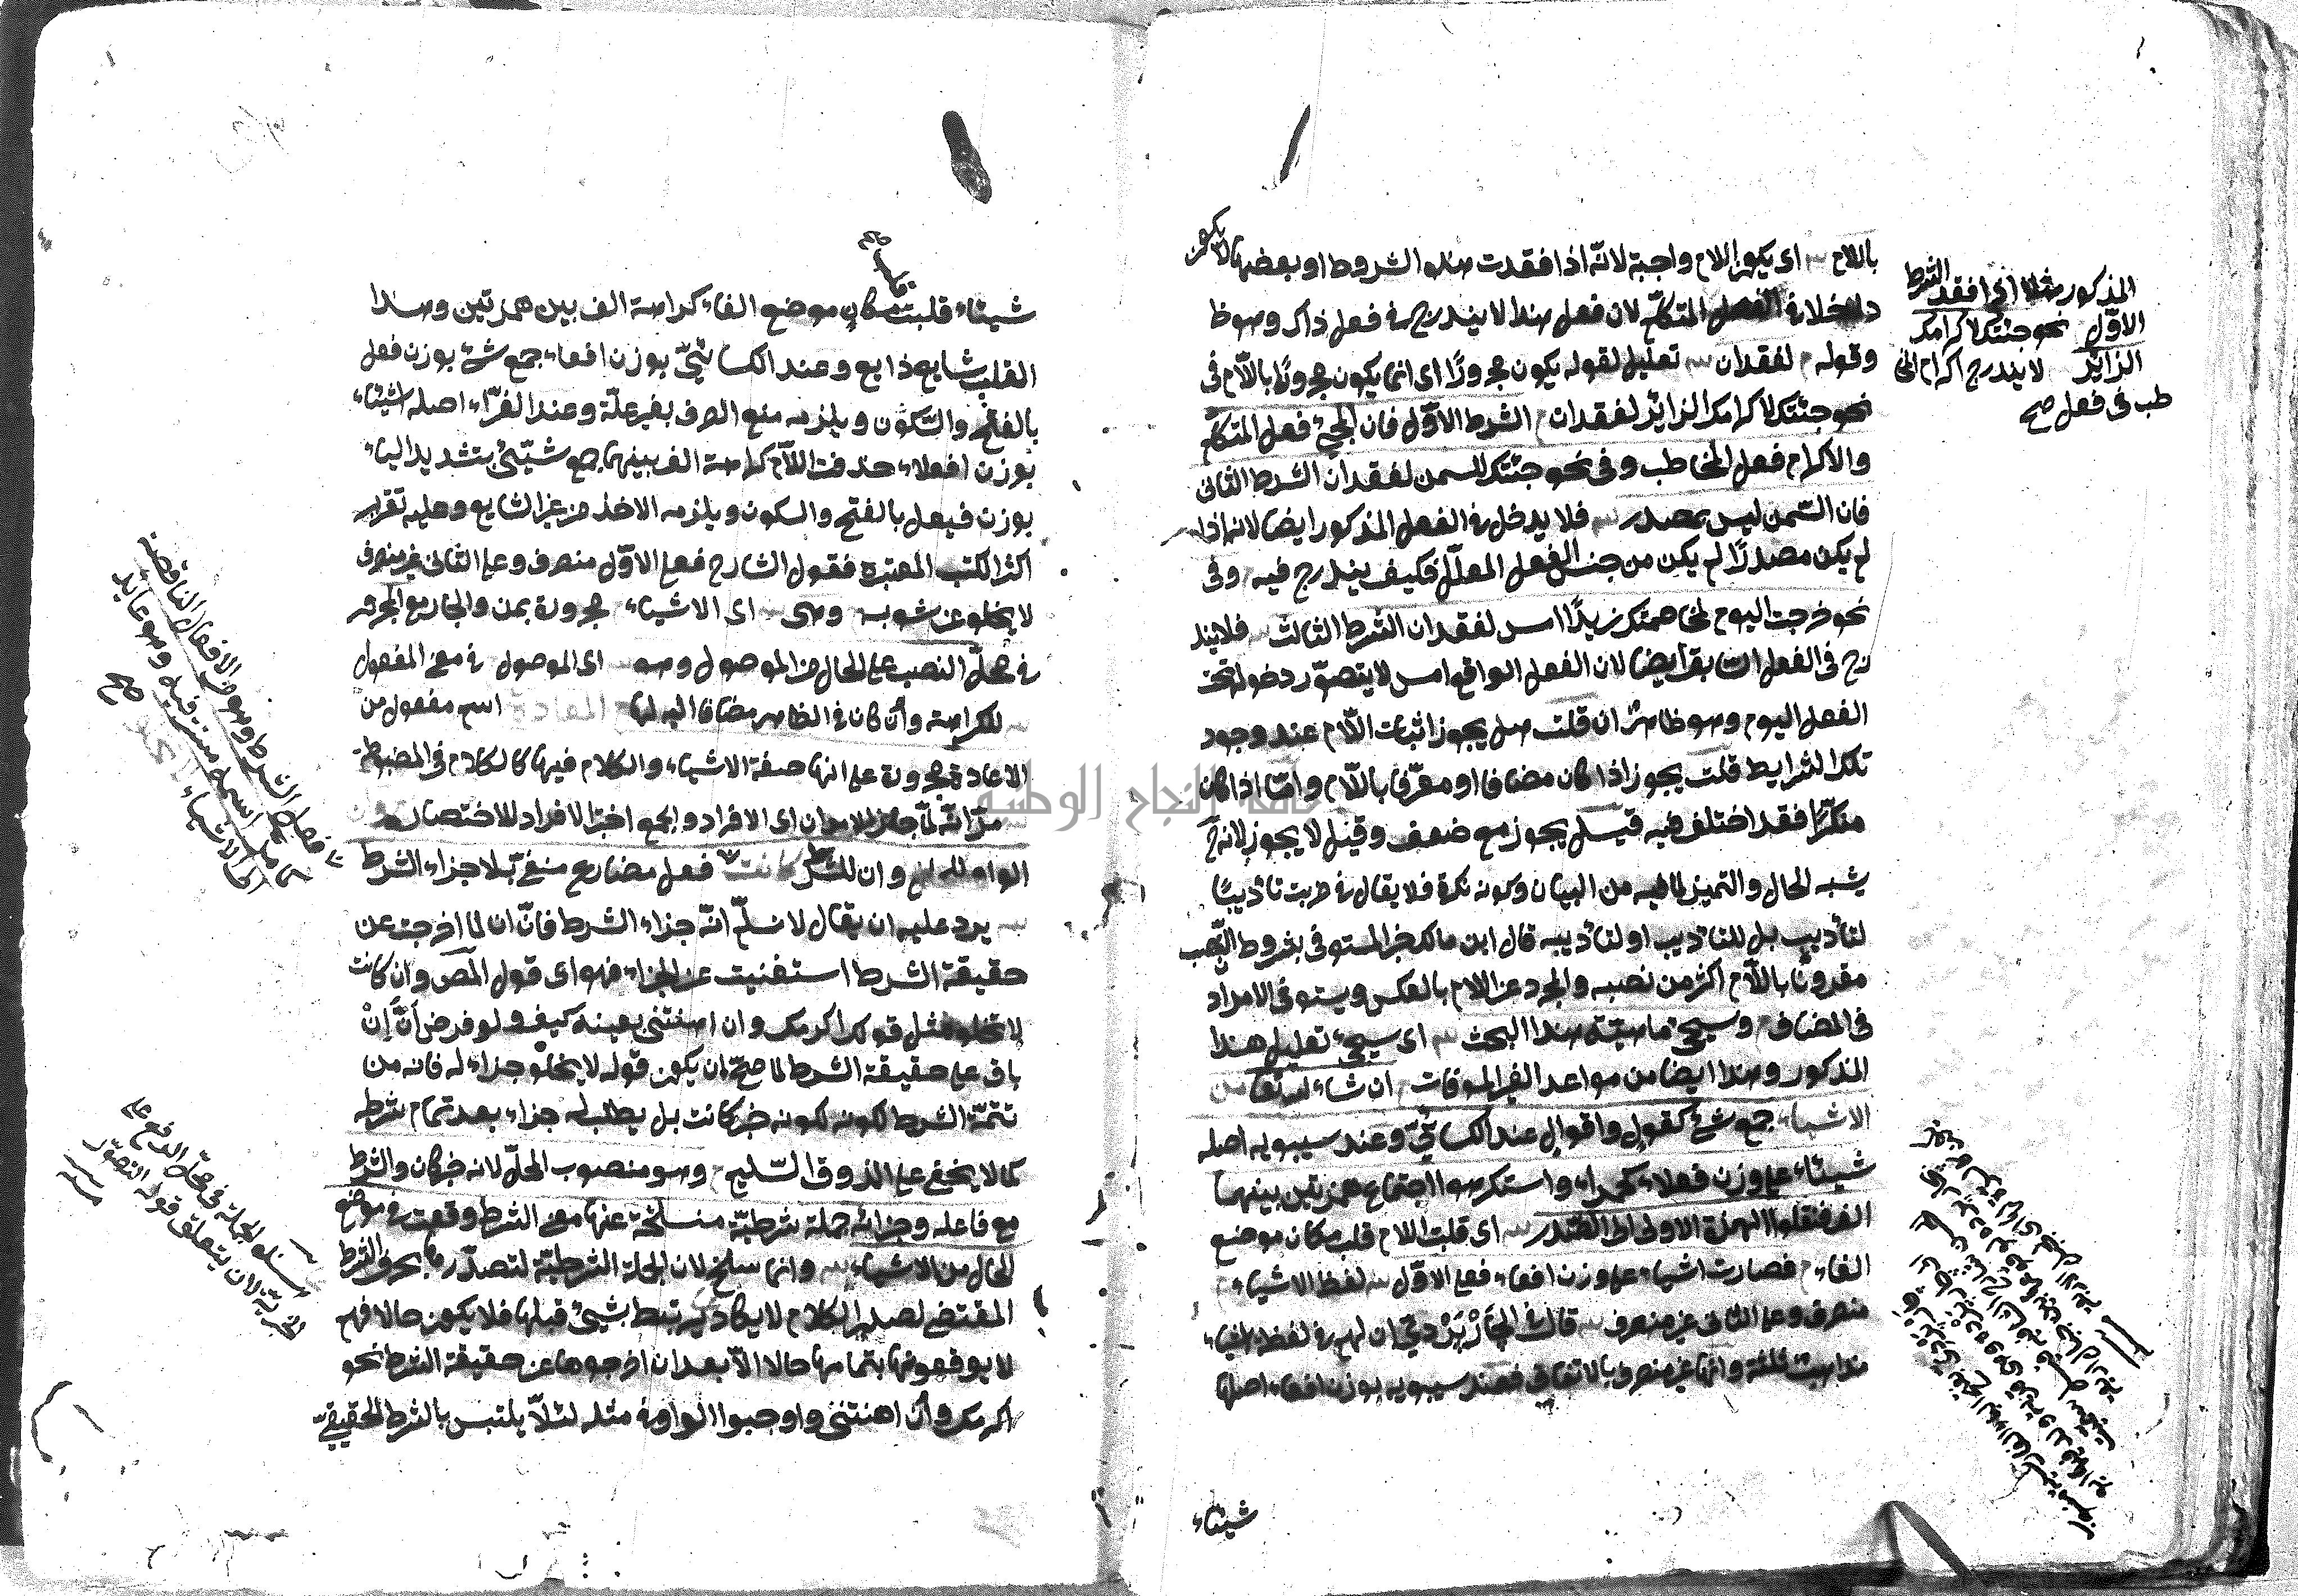 باللام اى يكون اللام واجبة لانه اذا فقدت هذه الشروط او بعضها لا يكون
داخلا فى الفعل المتكلم لان فعل هذا لا يندرج فى فعل ذاك وهو ظ
وقوله لفقدان تعليل لقوله يكون مجرورًا اى انما يكون مجرورًا باللّام فى
نحو جئتك لاكرامك الزائر لفقدان الشرط الاوّل فان المجئ فعل المتكلم
والاكرام فعل المخاطب وفى نحو جئتك للسمن لفقدان الشرط الثانى
فان السّمن ليس بمصدر فلا يدخل فى الفعل المذكور ايضا لانه اذا
لم يكن مصدرًا لم يكن من جنس الفعل المعلّل فكيف يندرج فيه وفى
نحو خرجت اليوم لمخاصمتك زيدًا امس لفقدان الشرط الثالث فلا يند
رج فى الفعل السابق ايضا لان الفعل الواقع امس لا يتصوّر دخوله تحت
الفعل اليوم وهو ظاهر ان قلت هل يجوز اثبات اللّام عند وجود
تلك الشرايط قلت يجوز اذا كان مضافا او معرّفا باللّام وامّا اذا كان
منكّرًا فقد اختلف فيه قيل يجوز مع ضعف وقيل لا يجوز لانه ح
يشبه الحال والتميز لما فيه من البيان وكونه نكرة فلا يقال فى ضربت تأديبًا
لتأديب بل للتأديب او لتأديبه قال ابن مالك فجر المستوفى بشروط النّصب
مقرونا باللّام اكثر من نصبه والمجرد عن اللام بالعكس ويستوفى الامران
فى المضاف وسيجئ ماسيّة هذا البحث اى سيجئ تعليل هذا
المذكور وهذا ايضا من مواعد الغير الموفات ان شاء الله تعا من
الاشياء جمع شئ كقول واقوال عند الكسائىّ وعند سيبويه اصله
شيئاء على وزن فعلاء كحمراء واستكرهوا اجتماع همزتين بينهما
الف فنقلوا الهمزة الاولى الى الصّدر اى قلبت اللام قلب مكان موضع
الفاء فصارت اشياء على وزن افعاء فعلى الاوّل لفظ الاشياء
منصرف وعلى الثانى غير منصرف قال الجَارْبَرْدىّ ان لهم فى لفظ اشياء
مذاهب ثلثة وانها غير منصرف بالاتفاق فعند سيبويه بوزن افعاء اصلها
شيئاء
المذكور مثلا اى افقد الشرط
الاوّل نحو جئتك لاكرامك
الزائر لا يندرج اكرام المخا
طب فى فعل صح
شيئاء قلبت مكان موضع الفاء كراهة الف بين همزتين وهذا
القلب شايع ذايع وعند الكسائىّ بوزن افعاء جمع شئ بوزن فعل
بالفتح والسّكون ويلزمه منع الصرف بغير علّة وعند الفرّاء اصله اشيئاء
بوزن افعلاء حذفت اللّام كراهة الف بينهما جمع شيّئ بتشديد الياء
بوزن فيعل بالفتح والسكون ويلزمه الاخذ من غير الشايع وعليه تقرار
اكثر الكتب المعتبرة فقول الشارح فعلى الاوّل منصرف وعلى الثانى غير منصرف
لا يخلو عن شوب وهى اى الاشياء مجرورة بمن والجار مع المجرور
فى محلّ النصب على الحال من الموصول وهو اى الموصول فى معنى المفعول
للكراهة وأن كان فى الظاهر مضافا اليه لها المعادة اسم مفعول من
الاعادة مجرورة على انها صفة الاشياء والكلام فيها كالكلام فى المضبوطة
مرّ انّه لمّا جاز الامران اى الافراد والجمع اختر الافراد للاختصار وان
الواو للحال وان للشرط كانت فعل مضارع منفىّ بلا جزاء الشرط
يرد عليه ان يقال لا نسلّم انّه جزاء الشرط فانّ ان لما اخرجت عن
حقيقة الشرط استغنيت عن الجزاء فهو اى قول المص وان كانت
لا تخلو مثل قولك اكرمك وان اهنتنى بعينه كيف ولو فرض أنّ إنْ
باق على حقيقة الشرط لما صحّ ان يكون قوله لا يخلو جزاء له فانه من
تتمّة الشرط لكونه لكونه خبر كانت بل يطلب له جزاء بعد تمام شرطه
كما لا يخفى على الذوق السّليم وهو منصوب المحلّ لانه خبر كان والشرط
مع فاعله وجزائه جملة شرطيّة منسلخة عنها معنى الشرط وقعت فى موضع
الحال من الاشياء وانما سلخ لان الجملة الشرطيّة لتصدّرها بحرف الشرط
المقتضى لصدر الكلام لا يكاد يرتبط بشئ قبلها فلا يكون حالا فهم
لا يوقعونها بتمامها حالا الّا بعد ان اخرجوها عن حقيقة الشرط نحو
اكرمك وأن اهنتنى واوجبوا الواو فى مثله لئلّا يلتبس بالشرط الحقيقىّ
جامعة النجاح الوطنية